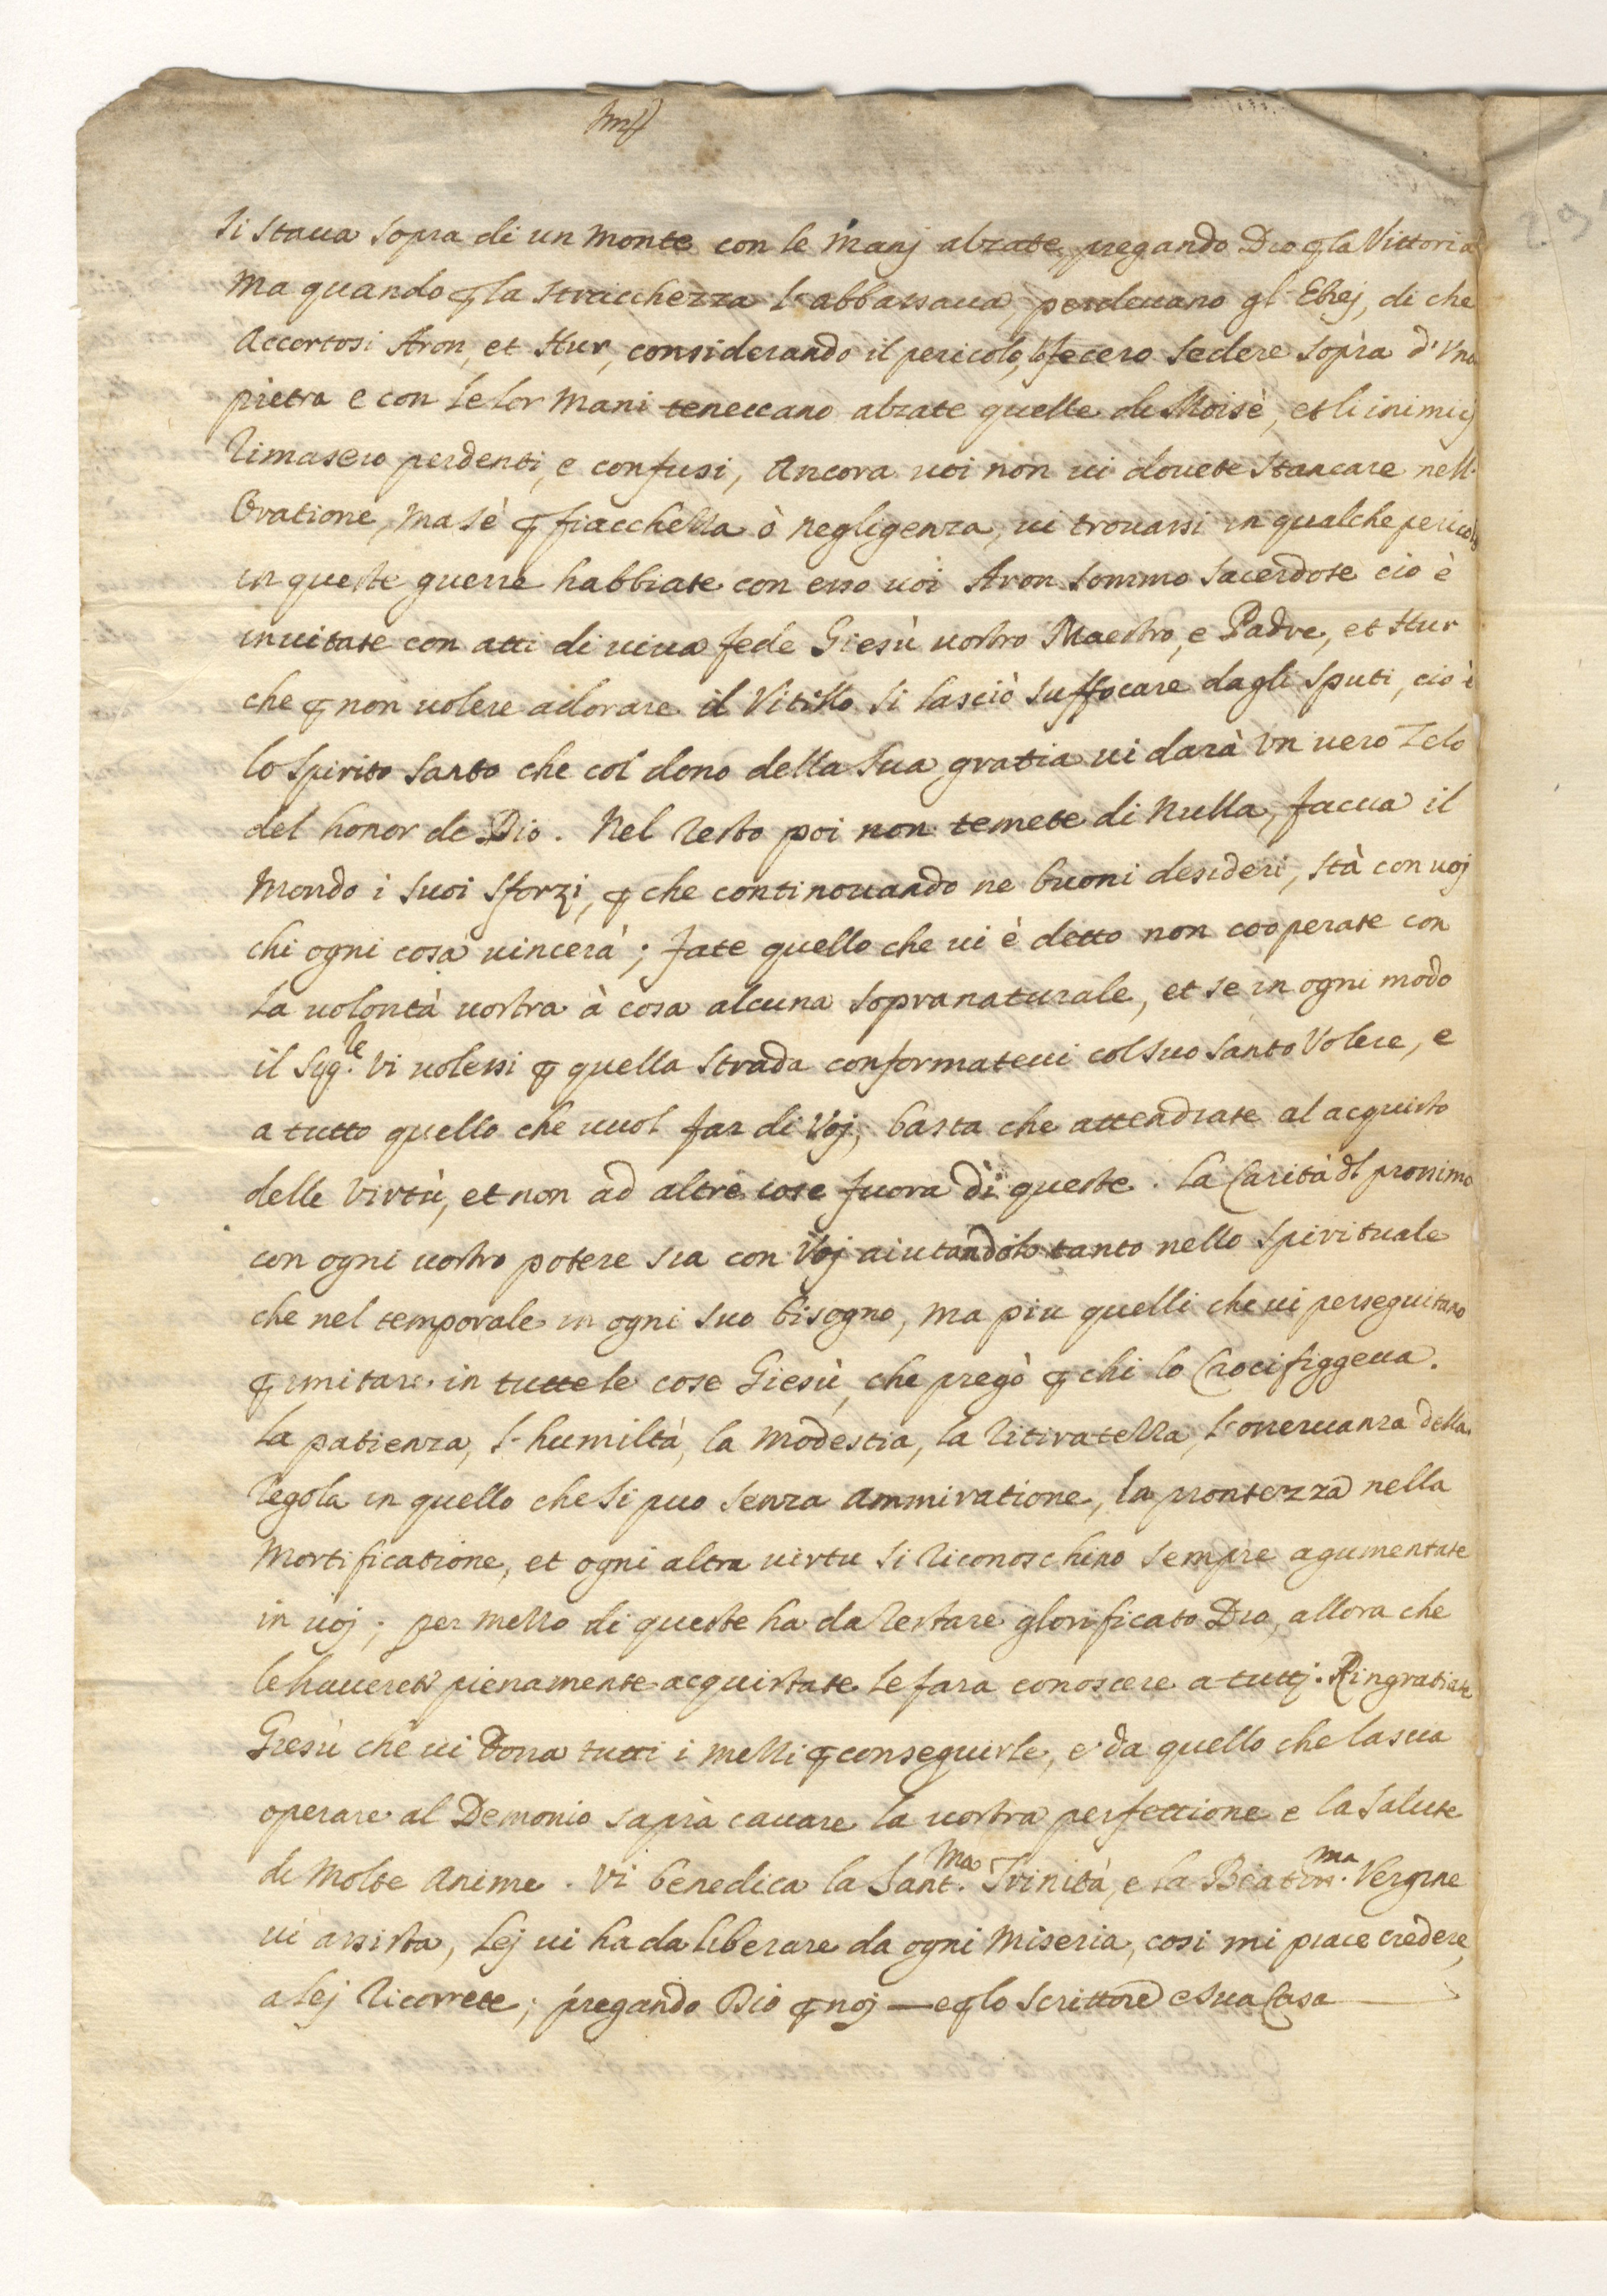 si staua sopra di un monte con le manj alzate, pregando Dio p la Vittoria
ma quando p la stracchezza l'abbassaua, perdeuano gl'Ebrej, di che
accortosi Aron, et Hur, considerando il pericolo, lo fecero sedere sopra d'una
pietra e con le lor mani teneuano alzate quelle di Moisè, et li inimicj
rimasero perdenti, e confusi, ancora uoi non ui douete stancare nell'
Oratione, ma sè p fiacchezza ò negligenza, ui trouassi in qualche pericolo
in queste guerre habbiate con esso uoi Aron sommo sacerdote ciò è
inuitate con atti di uiua fede Giesù uostro Maestro, e Padre, et Hur
che p non uolere adorare il Vitello si lasciò suffocare dagli sputi, ciò è
lo spirito santo che col dono della sua gratia ui darà un uero zelo
del honor de Dio. Nel resto poi non temete di nulla, faccia il
mondo i suoi sforzi, p che continouando ne buoni desideri, stà con uoj
chi ogni cosa uincerà; fate quello che ui è detto non cooperate con
la uolontà uostra à cosa alcuna sopranaturale, et se in ogni modo
il Sig.re Vi uolessi p quella strada conformateui col suo santo Volere, e
a tutto quello che uuol far di Voj, basta che attendiate al acquisto
delle Virtù, et non ad altre cose fuora di queste. La Carità dl prossimo
con ogni uostro potere sia con Voj aiutandolo tanto nello spirituale
che nel temporale in ogni suo bisogno, ma piu quelli che ui perseguitano
p imitare in tutte le cose Giesù, che pregò p chi lo Crocifiggeua.
La patienza, l'humiltà, la modestia, la ritiratezza, l'osseruanza della
regola in quello che si puo senza ammiratione, la prontezza nella
mortificatione, et ogni altra uirtu si riconoschino sempre agumentate
in uoj; per mezzo di queste ha da restare glorificato Dio, allora che
le hauerete pienamente acquistate le fara conoscere a tuttj. Ringratiate
Giesù che ui dona tutti i mezzi p conseguirle, e da quello che lascia
operare al Demonio saprà cauare la uostra perfettione e la salute
di molte anime. Vi benedica la Sant.ma Trinità, e la Beatis.ma Vergine
ui assista, lej ui ha da liberare da ogni miseria, cosi mi piace credere,
a lej ricorrete; pregando Dio p noj — e p lo scrittore e sua Casa —